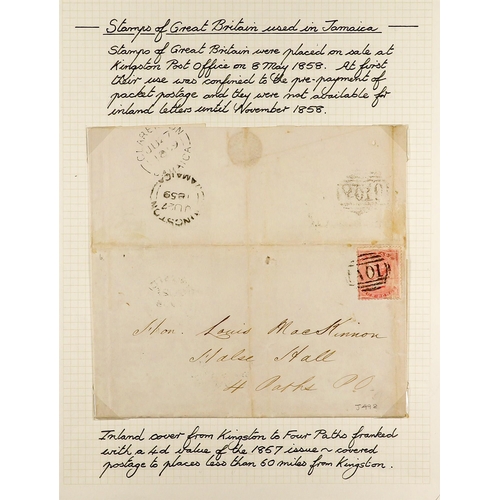 Stamps of Great Britain used in Jamaica
Stamps of Great Britain were placed on sale at
Kingston Post Office on 8 May 1858. At first
their use was confined to the pre-payment of
packet postage and they were not available for
inland letters until November 1858.
JAMAICA
KINGSTON
JU 27
1859
A01
A01
Hon. Louis MacKinnon
Halse Hall
4 Paths P.O.
Inland cover from Kingston to Four Paths franked
with a 4d value of the 1857 issue ~ covered
postage to places less than 60 miles from Kingston.